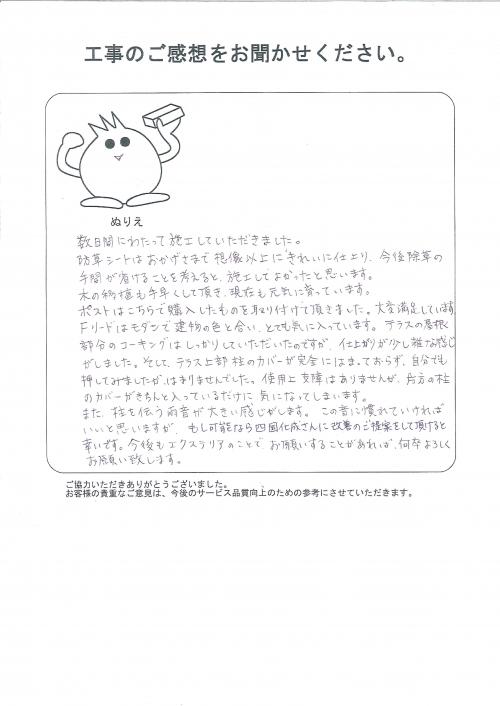 工事のご感想をお聞かせください。
ぬりえ
数日間にわたって施工していただきました。
防草シートはおかげさまで想像以上にきれいに仕上り、今後除草の
手間が省けることを考えると、施工してよかったと思います。
木の移植も手早くして頂き、現在も元気に育っています。
ポストはこちらで購入したものを取り付けて頂きました。大変満足しています。
Fリードはモダンで建物の色と合い、とても気に入っています。テラスの屋根
部分のコーキングはしっかりしていただいたのですが、仕上がりが少し雑な感じ
がしました。そして、テラス上部柱のカバーが完全にはまっておらず、自分でも
押してみましたが、はまりませんでした。使用上支障はありませんが、片方の柱
のカバーがきちんと入っているだけに気になってしまいます。
また、柱を伝う雨音が大きい感じがします。この音に慣れていければ
いいと思いますが、もし可能なら四国化成さんに改善のご提案をして頂けると
幸いです。今後もエクステリアのことで、お願いすることがあれば、何卒よろしく
お願い致します。
ご協力いただきありがとうございました。
お客様の貴重なご意見は、今後のサービス品質向上のための参考にさせていただきます。